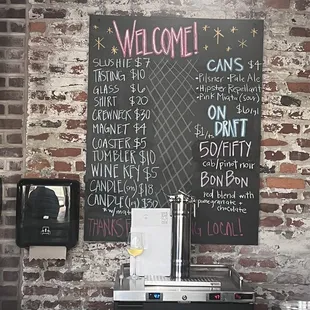 WELCOME!
SLUSHIE $7
TASTING $10
GLASS $6
SHIRT $20
CREWNECK $30
MAGNET $4
COASTER $5
TUMBLER $10
WINE KEY $5
CANDLE (sm) $18
CANDLE (lg) $30
THANKS
LOCAL!
CANS $4
• Pilsner • Pale Ale
• Hipster Repellant
• Pink Miata (sour)
ON
DRAFT
50/FIFTY
cab/pinot noir
BON BON
red blend with
pomegranate +
chocolate